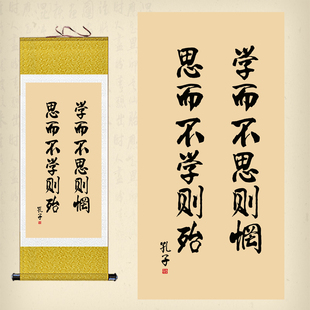 学而不思则惘
思而不学则殆
孔子
学而不思则惘
思而不学则殆
孔子